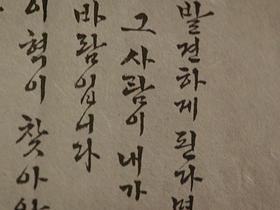 발견하게 된다면
그 사람이 내가
바람입니다
이 혁이 찾아